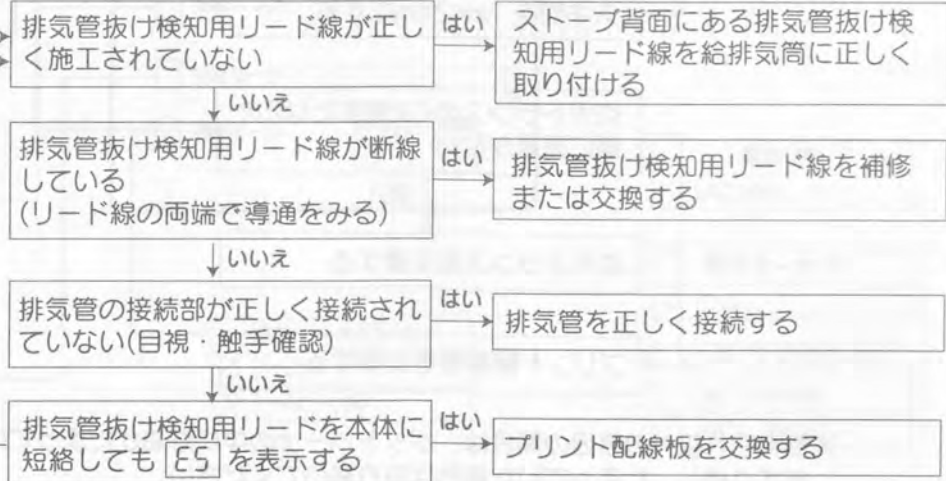 排気管抜け検知用リード線が正し
く施工されていない
はい
ストーブ背面にある排気管抜け検
知用リード線を給排気筒に正しく
取り付ける
いいえ
排気管抜け検知用リード線が断線
している
(リード線の両端で導通をみる)
はい
排気管抜け検知用リード線を補修
または交換する
いいえ
排気管の接続部が正しく接続され
ていない(目視・触手確認)
はい
排気管を正しく接続する
いいえ
排気管抜け検知用リードを本体に
短絡しても ES を表示する
はい
プリント配線板を交換する